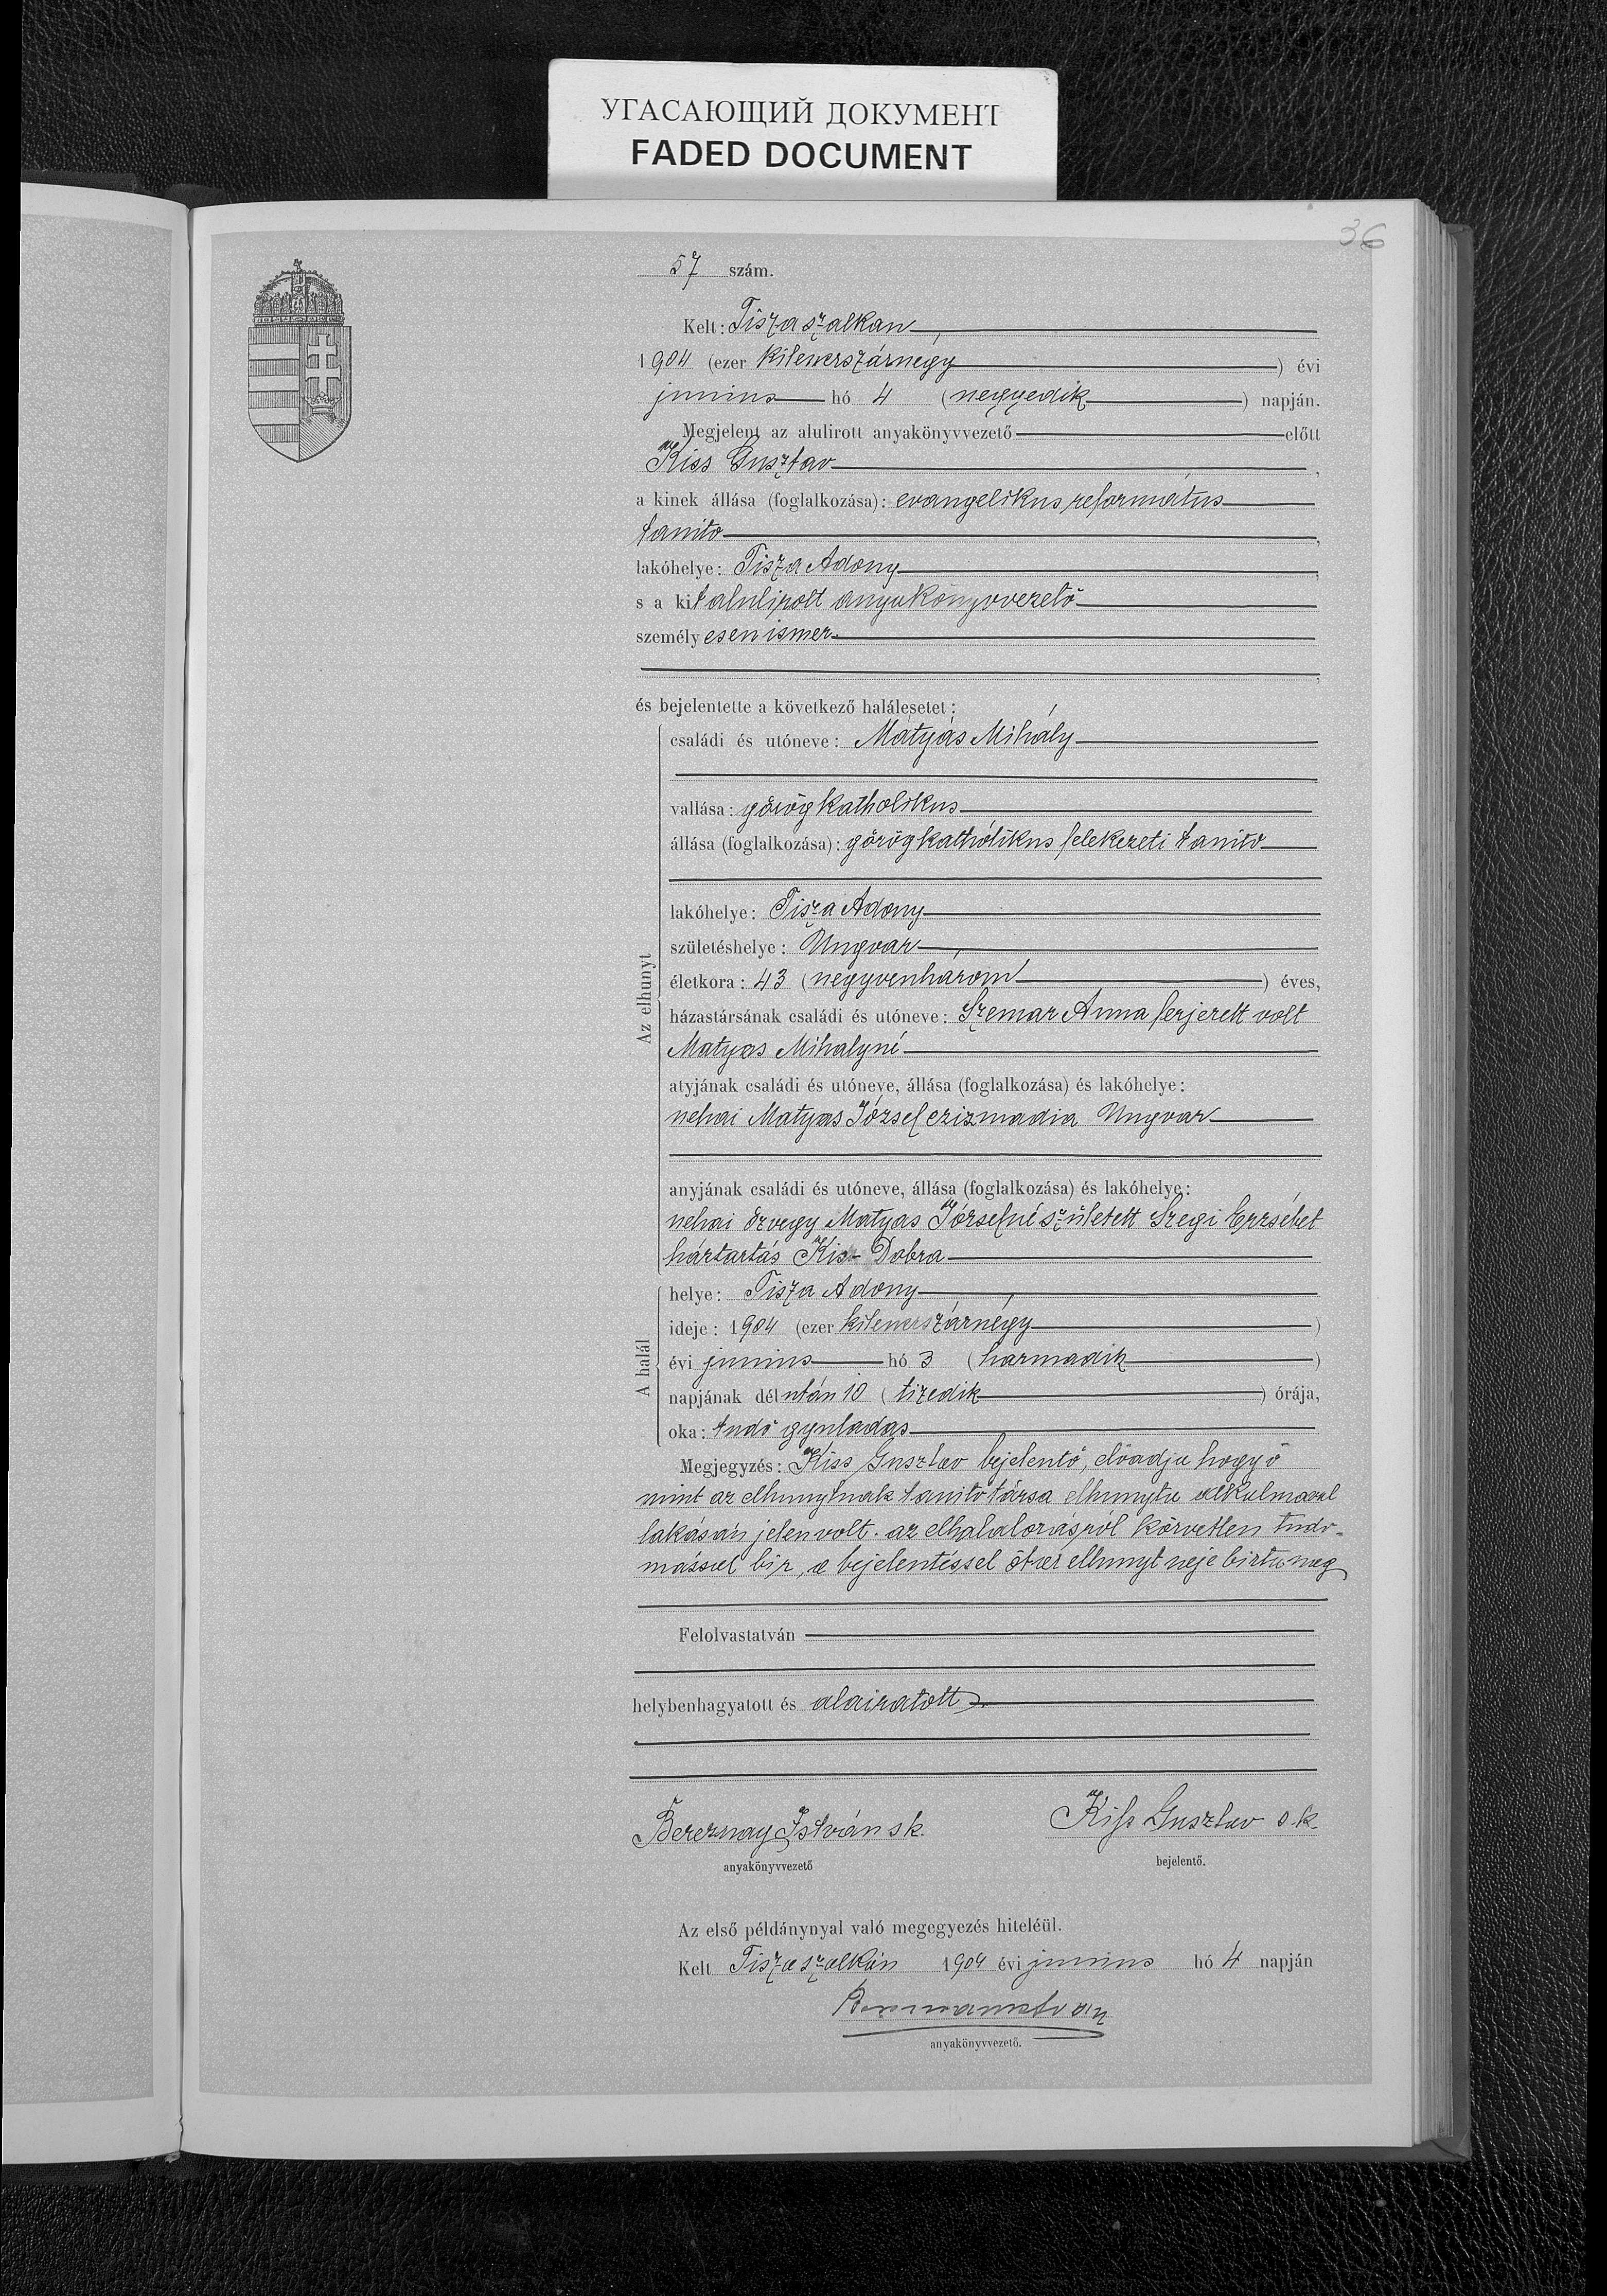 УГАСАЮЩИЙ ДОКУМЕНТ
FADED DOCUMENT
36
57 szám.
Kelt: Tiszaszalkán
1904 (ezer kilenczszáznégy) évi
junius hó 4 (negyedik) napján.
Megjelent az alulirott anyakönyvvezető előtt
Kiss Gusztav,
a kinek állása (foglalkozása): evangelikus református
tanito,
lakóhelye: Tisza Adony,
s a kit alulirott anyakönyvvezető
személyesen ismer.
,
és bejelentette a következő halálesetet:
Az elhunyt
családi és utóneve: Mátyás Mihály
vallása: görög katholikus
állása (foglalkozása): görög kathólikus felekezeti tanito
lakóhelye: Tisza Adony
születéshelye: Ungvar
életkora: 43 (negyvenhárom) éves,
házastársának családi és utóneve: Szemar Anna ferjezett volt
Matyas Mihalyné
atyjának családi és utóneve, állása (foglalkozása) és lakóhelye:
nehai Matyas József czizmadia Ungvar
anyjának családi és utóneve, állása (foglalkozása) és lakóhelye:
nehai özvegy Matyas Józsefné született Szegi Erzsébet
háztartás Kis-Dobra
A halál
helye: Tisza Adony
ideje: 1904 (ezer kilenczszáznégy)
évi junius hó 3 (harmadik)
napjának délután 10 (tizedik) órája,
oka: tudő gyuladas
Megjegyzés: Kiss Gusztav bejelentő, előadja hogy ő
mint az elhunytnak tanitótársa elhunyta alkalmaval
lakásán jelen volt. az elhalalozásról közvetlen tudo-
mással bir, a bejelentéssel őt az elhunyt neje bizta meg
Felolvastatván
helybenhagyatott és alairatott.
Bereznay István sk. Kiss Gusztav s.k.
anyakönyvvezető bejelentő.
Az első példánynyal való megegyezés hiteléül.
Kelt Tiszaszalkán 1904 évi junius hó 4 napján
anyakönyvvezető.